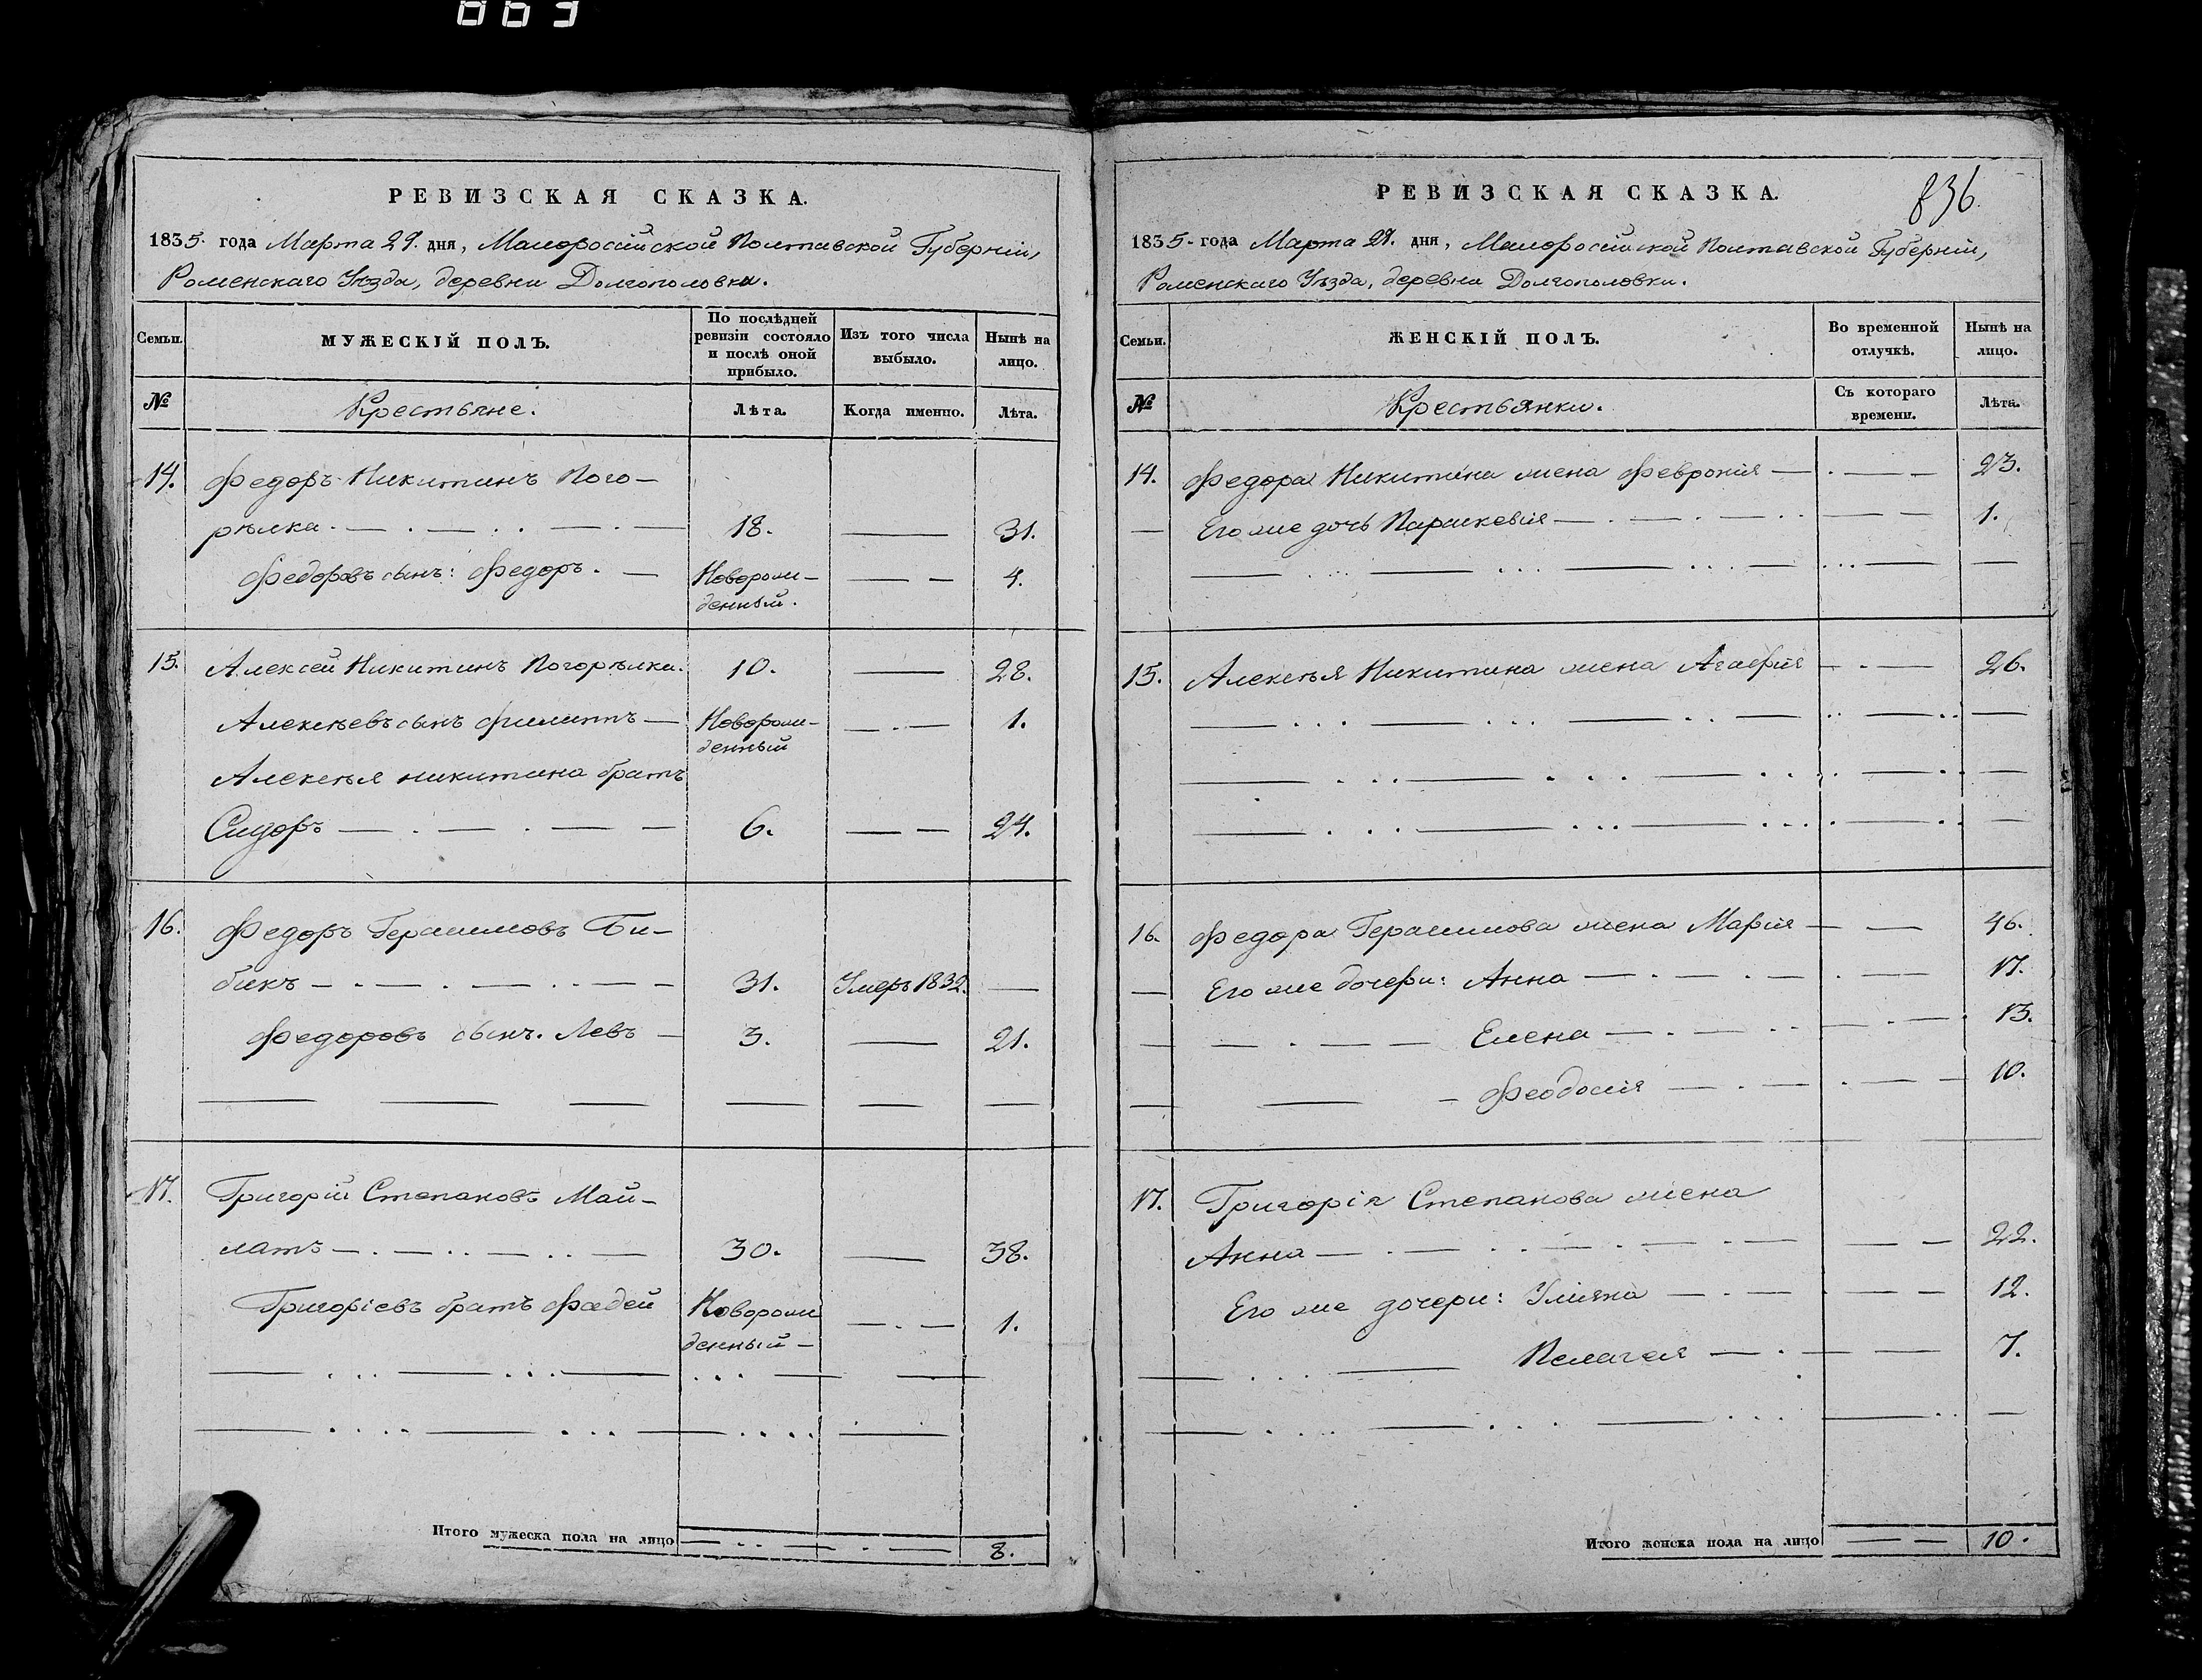 РЕВИЗСКАЯ СКАЗКА.
1835. года Марта 29. дня, Малоросійской Полтавской Губерніи,
Роменскаго Уѣзда, деревни Долгополовки.
Семьи.
МУЖЕСКІЙ ПОЛЪ.
По послѣдней ревизіи состояло и послѣ оной прибыло.
Изъ того числа выбыло.
Нынѣ на лицо.
№
Крестьяне.
Лѣта.
Когда именно.
Лѣта.
14. Федоръ Никитинъ Пого–
рѣлка. 18. 31.
Федоровъ сынъ: Федоръ.Новорож– 4.
денный.
15. Алексей Никитинъ Погорѣлка. 10. 28.
Алексѣевъ сынъ Филитъ Новорож– 1.
денный
Алексѣя никитина братъ
Сидоръ 6. 24.
16. Федоръ Герасимовъ Би–
бикъ 31. Умеръ 1832.
Федоровъ сынъ. Левъ 3. 21.
17. Григорій Степановъ Май–
латъ 30. 38.
Григоріевъ братъ Фадей Новорож 1.
денный –
Итого мужеска пола на лицо 8.
РЕВИЗСКАЯ СКАЗКА.
836.
1835. года Марта 29. дня, Малоросійской Полтавской Губерніи,
Роменскаго Уѣзда, деревни Долгополовки.
Семьи.
ЖЕНСКІЙ ПОЛЪ.
Во временной отлучкѣ.
Нынѣ на лицо.
№
Крестьянки.
Съ котораго времени.
Лѣта.
14. Федора Никитина жена Февронія 23.
Его же дочь Параскевія 1.
15. Алексѣя Никитина жена Агафія 26.
16. Федора Герасимова жена Марія 46.
Его же дочери: Анна 17.
Елена 13.
Феодосія 10.
17. Григорія Степанова жена
Анна 22.
Его же дочери: Уліяна 12.
Пелагея 7.
Итого женска пола на лицо 10.